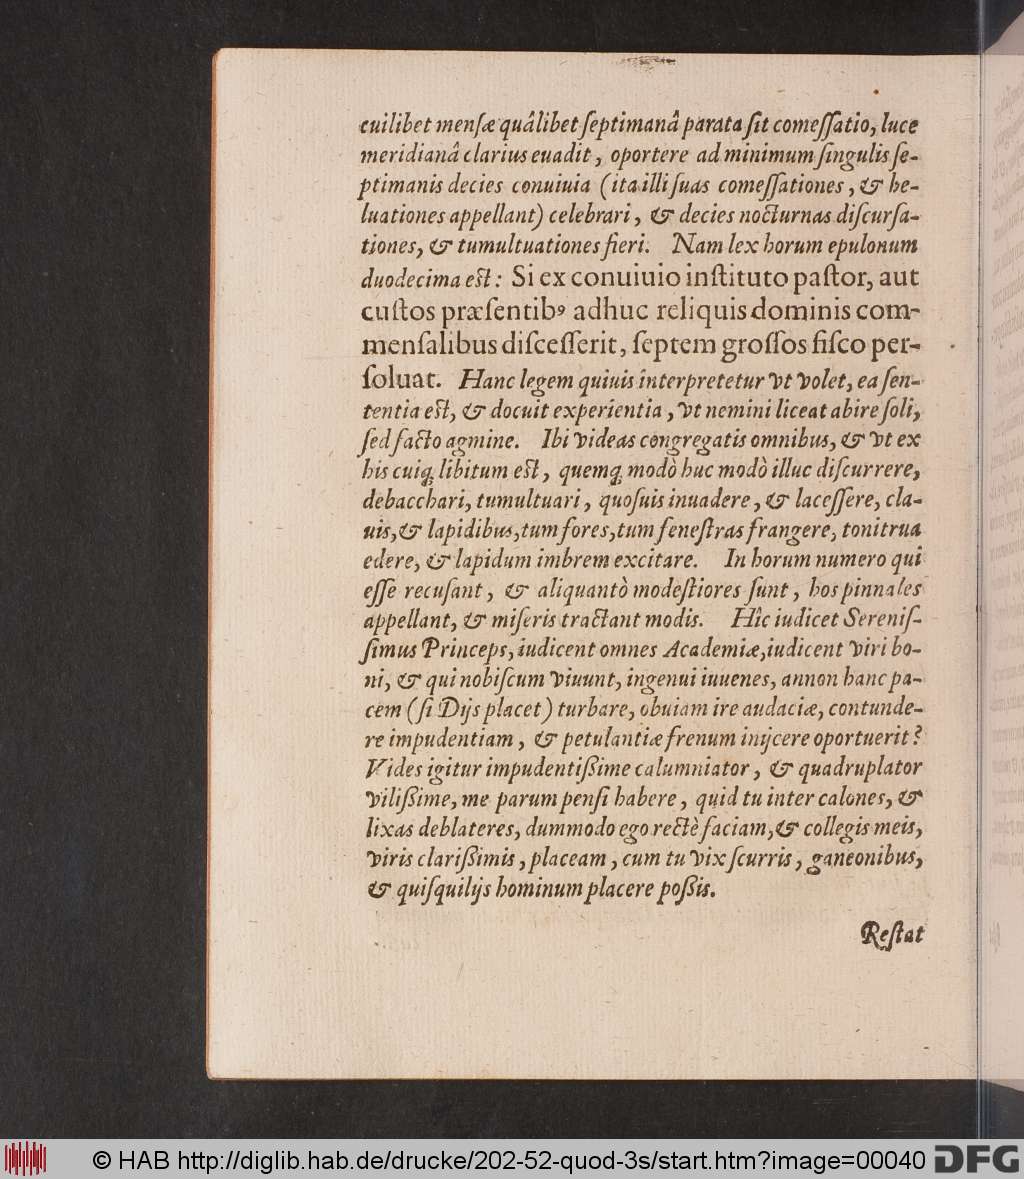 cuilibet mensæ quâlibet ſeptimanâ parata ſit comeſſatio, luce
meridianâ clarius euadit, oportere ad minimum ſingulis ſe-
ptimanis decies conuiuia (ita illi ſuas comeſſationes, & he-
luationes appellant) celebrari, & decies nocturnas diſcurſa-
tiones, & tumultuationes fieri. Nam lex horum epulonum
duodecima eſt: Si ex conuiuio inſtituto paſtor, aut
cuſtos præſentibꝰ adhuc reliquis dominis com-
menſalibus diſceſſerit, ſeptem groſſos fiſco per-
ſoluat. Hanc legem quiuis interpretetur vt volet, ea ſen-
tentia eſt, & docuit experientia, vt nemini liceat abire ſoli,
ſed facto agmine. Ibi videas congregatis omnibus, & vt ex
his cuiq́; libitum eſt, quemq́; modò huc modò illuc diſcurrere,
debacchari, tumultuari, quoſuis inuadere, & laceſſere, cla-
uis, & lapidibus, tum fores, tum feneſtras frangere, tonitrua
edere, & lapidum imbrem excitare. In horum numero qui
eſſe recuſant, & aliquantò modeſtiores ſunt, hos pinnales
appellant, & miſeris tractant modis. Hîc iudicet Sereniſ-
ſimus Princeps, iudicent omnes Academiæ, iudicent viri bo-
ni, & qui nobiſcum viuunt, ingenui iuuenes, annon hanc pa-
cem (ſi Dijs placet) turbare, obuiam ire audaciæ, contunde-
re impudentiam, & petulantiæ frenum inijcere oportuerit?
Vides igitur impudentißime calumniator, & quadruplator
vilißime, me parum penſi habere, quid tu inter calones, &
lixas deblateres, dummodo ego rectè faciam, & collegis meis,
viris clarißimis, placeam, cum tu vix ſcurris, ganeonibus,
& quiſquilijs hominum placere poßis.
Reſtat
© HAB http://diglib.hab.de/drucke/202-52-quod-3s/start.htm?image=00040 DFG